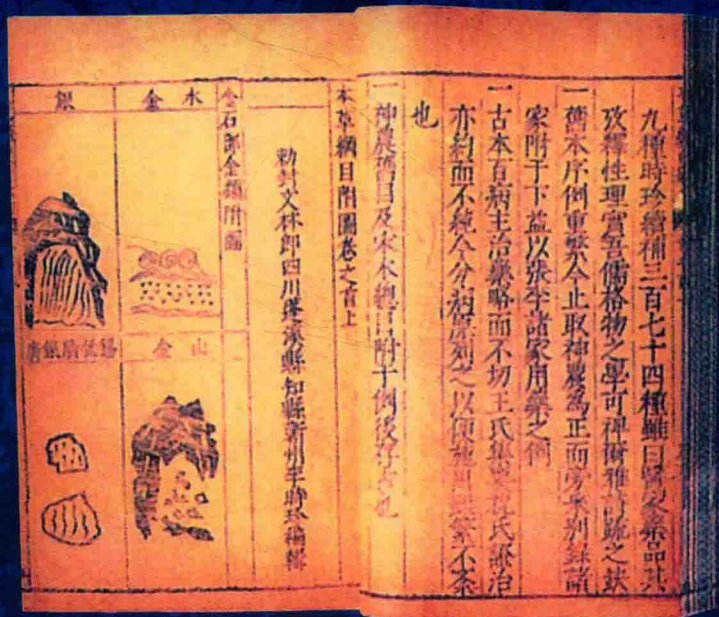 九種時珍續補三百七十四種雖曰醫家藥品其
攷釋性理實吾儒格物之學可裨爾雅詩疏之缺
一舊本序例重繁今止取神農爲正而旁采別錄諸
家附于下益以張李諸家用藥之例
一古本百病主治藥略而不切王氏集要祝氏證治
亦約而不純今分病原列之以便施用雖繁不紊
也
一神農舊目及宋本總目附于例後存古也
本草綱目附圖卷之首上
勅封文林郎四川蓬溪縣知縣蘄州李時珍編輯
金石部金類附圖
水金
山金
銀